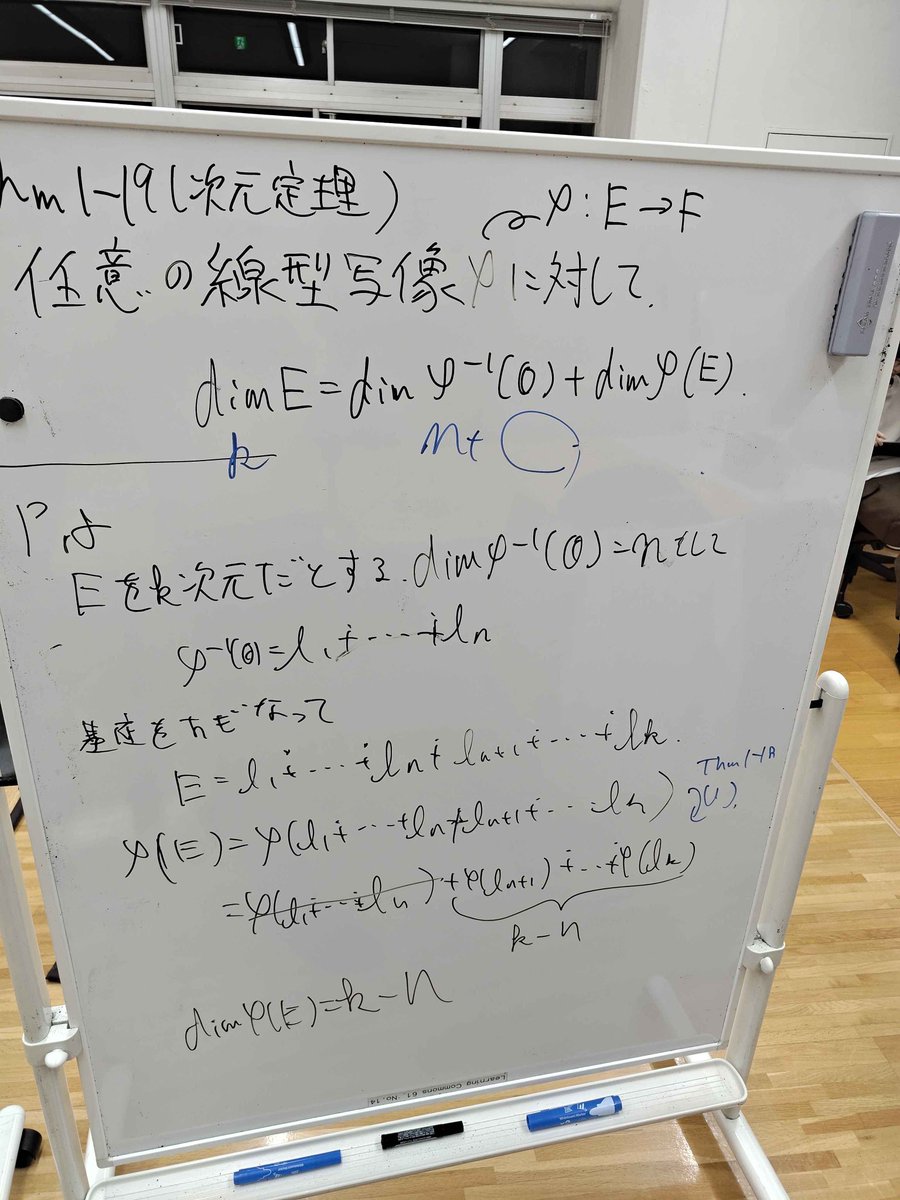 hm 1-19 (次元定理)
φ:E→F
任意の線型写像φに対して.
dimE=dim φ⁻¹(0)+dimφ(E).
k n+
Eをk次元だとする. dimφ⁻¹(0)=nとして
φ⁻¹(0)=l₁∔⋯∔lₙ
基底をおぎなって
E=l₁∔⋯∔lₙ∔lₙ₊₁∔⋯∔lₖ.
Thm1-18
φ(E)=φ(l₁∔⋯∔lₙ∔lₙ₊₁∔⋯lₖ)
=φ(l₁∔⋯∔lₙ)+φ(lₙ₊₁)∔⋯∔φ(lₖ)
k-n
dimφ(E)=k-n
Learning Commons 61 No.14